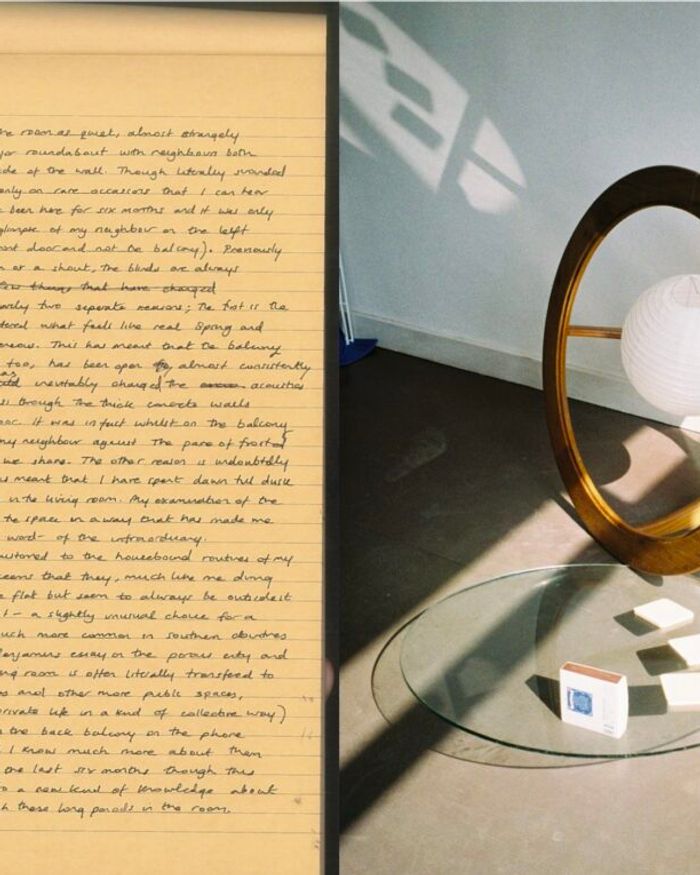 room as quiet, almost strangely
roundabout with neighbours both
of the wall. Though literally
only on rare occassions that I can hear
been here for six months and it was only
glimpse of my neighbour on the left
door and not the balcony). Previously
or a shout, the blinds are always
few things that have changed
two seperate reasons; the first is the
what feels like real Spring and
This has meant that the balcony
too, has been open almost consistently
inevitably changed the acoustics
through the thick concrete walls
It was in fact whilst on the balcony
my neighbour against the pane of frosted
we share. The other reason is undoubtedly
meant that I have spent dawn till dusk
in the living room. My examination of the
the space in a way that has made me
word - of the infraordinary.
to the housebound routines of my
that they, much like me during
flat but seem to always be outside at
- a slightly unusual choice for a
much more common in southern countries
Benjamins essay on the porous city and
room is often literally transfered to
and other more public spaces,
private life in a kind of collective way)
the back balcony on the phone
I know much more about them
the last six months though this
a new kind of knowledge about
these long periods in the room.